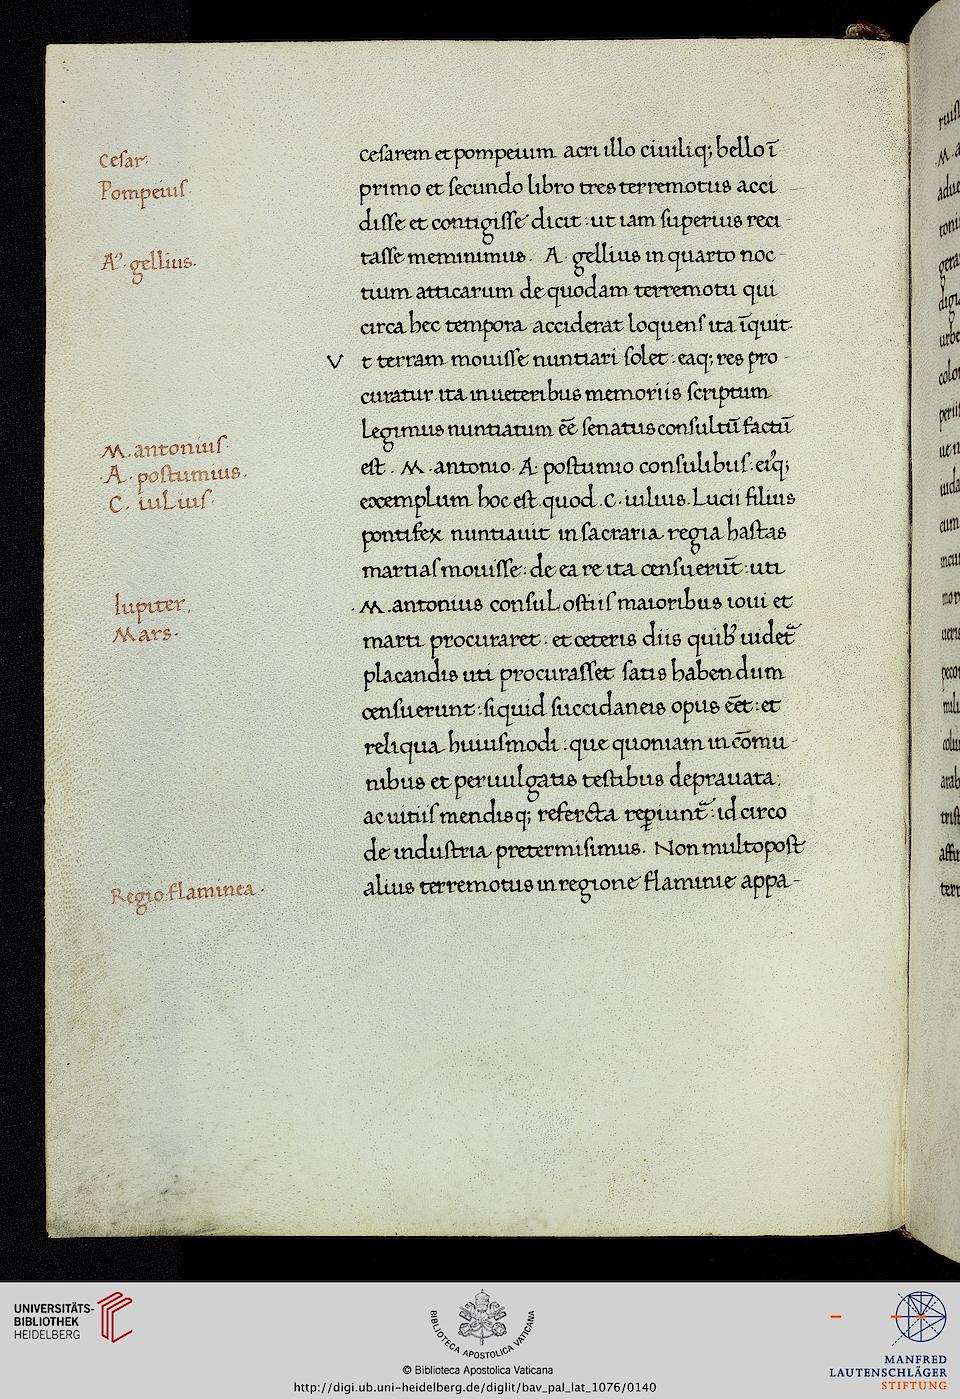 Cesar.
Pompeius
A. gellius.
M. antonius.
.A. postumius.
.C. iulius.
Iupiter.
Mars.
Regio flaminea.
cesarem et pompeium acri illo ciuiliq; bello ī
primo et secundo libro tres terremotus acci
disse et contigisse dicit: ut iam superius reci-
tasse meminimus. A. gellius in quarto noc-
tium atticarum de quodam terremotu qui
circa hec tempora acciderat loquens ita īquit.
V t terram mouisse nuntiari solet: eaq; res pro-
curatur. ita in ueteribus memoriis scriptum
legimus nuntiatum eē senatus consultū factū
est. M. antonio. A. postumio consulibus: eiꝰq;
exemplum hoc est. quod .C. iulius. Lucii filius
pontifex nuntiauit in sacraria regia hastas
martias mouisse: de ea re ita censuerūt: uti
.M. antonius consul ostiis maioribus ioui et
marti procuraret: et ceteris diis quibꝰ uidet᷑
placandis uti procurasset satis habendum
censuerunt: siquid succidaneis opus eēt: et
reliqua huiusmodi: que quoniam in cōmu-
nibus et peruulgatis testibus deprauata:
ac uitiis mendisq; refercta reꝑiunt᷑: id circo
de industria pretermisimus. Non multo post
alius terremotus in regione flaminie appa-
ruis
M. a
adue
toni
gera
digi
urbe
color
periit
uen
uida
cum
incu
mor
ueris
pecor
mili
colu
arab
trist
affir
terr
UNIVERSITÄTS-
BIBLIOTHEK
HEIDELBERG
BIBLIOTECA APOSTOLICA VATICANA
© Biblioteca Apostolica Vaticana
http://digi.ub.uni-heidelberg.de/diglit/bav_pal_lat_1076/0140
MANFRED
LAUTENSCHLÄGER
STIFTUNG